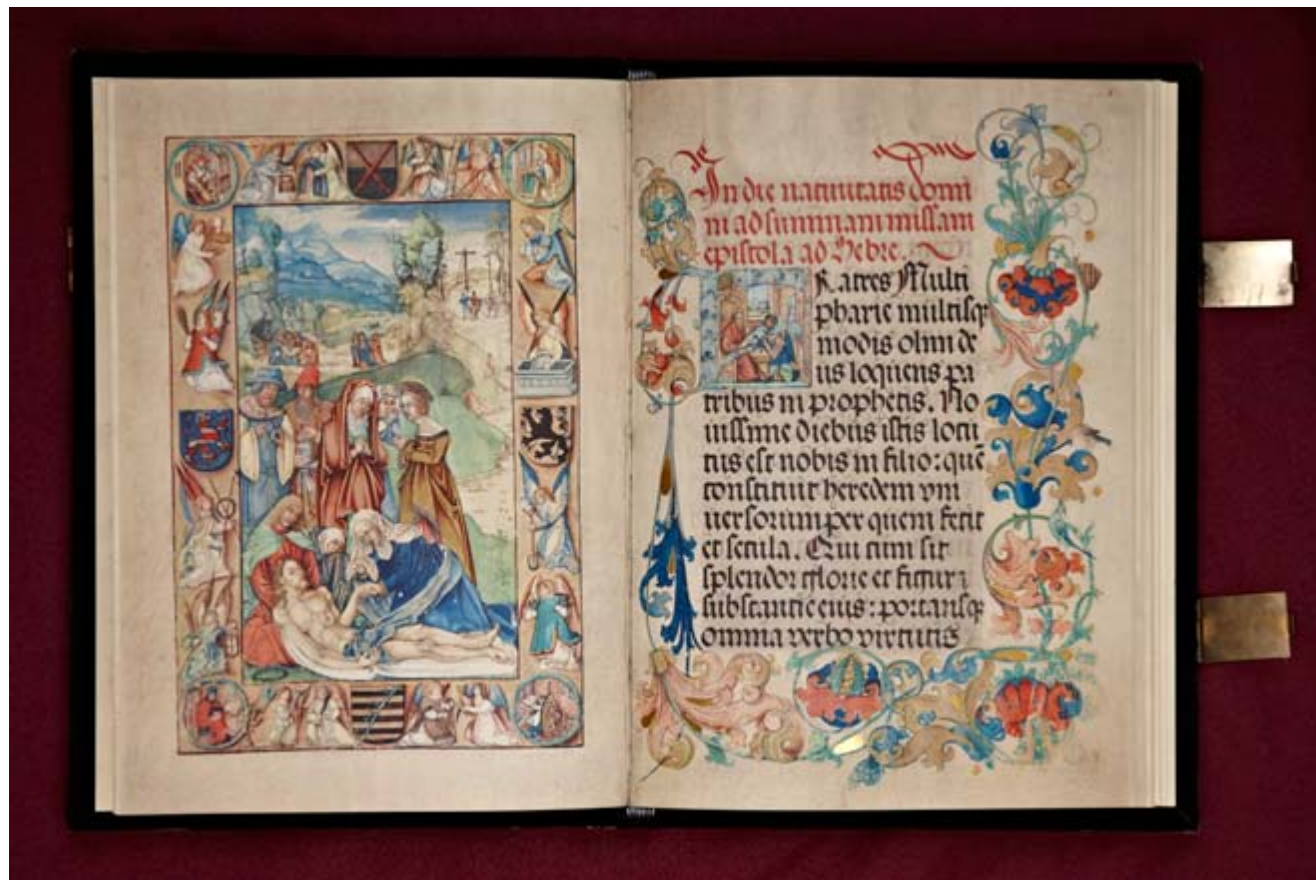 In die natiuitatis domi
ni ad summam missam
epistola ad Hebre.
Fratres Multi
pharie multisq
modis olim de
us loquens pa
tribus in prophetis. No
uissime diebus istis locu
tus est nobis in filio: quē
constituit heredem vni
uersorum per quem fecit
et secula. Qui cum sit
splendor glorie et figura
substantie eius: portansq
omnia verbo virtutis